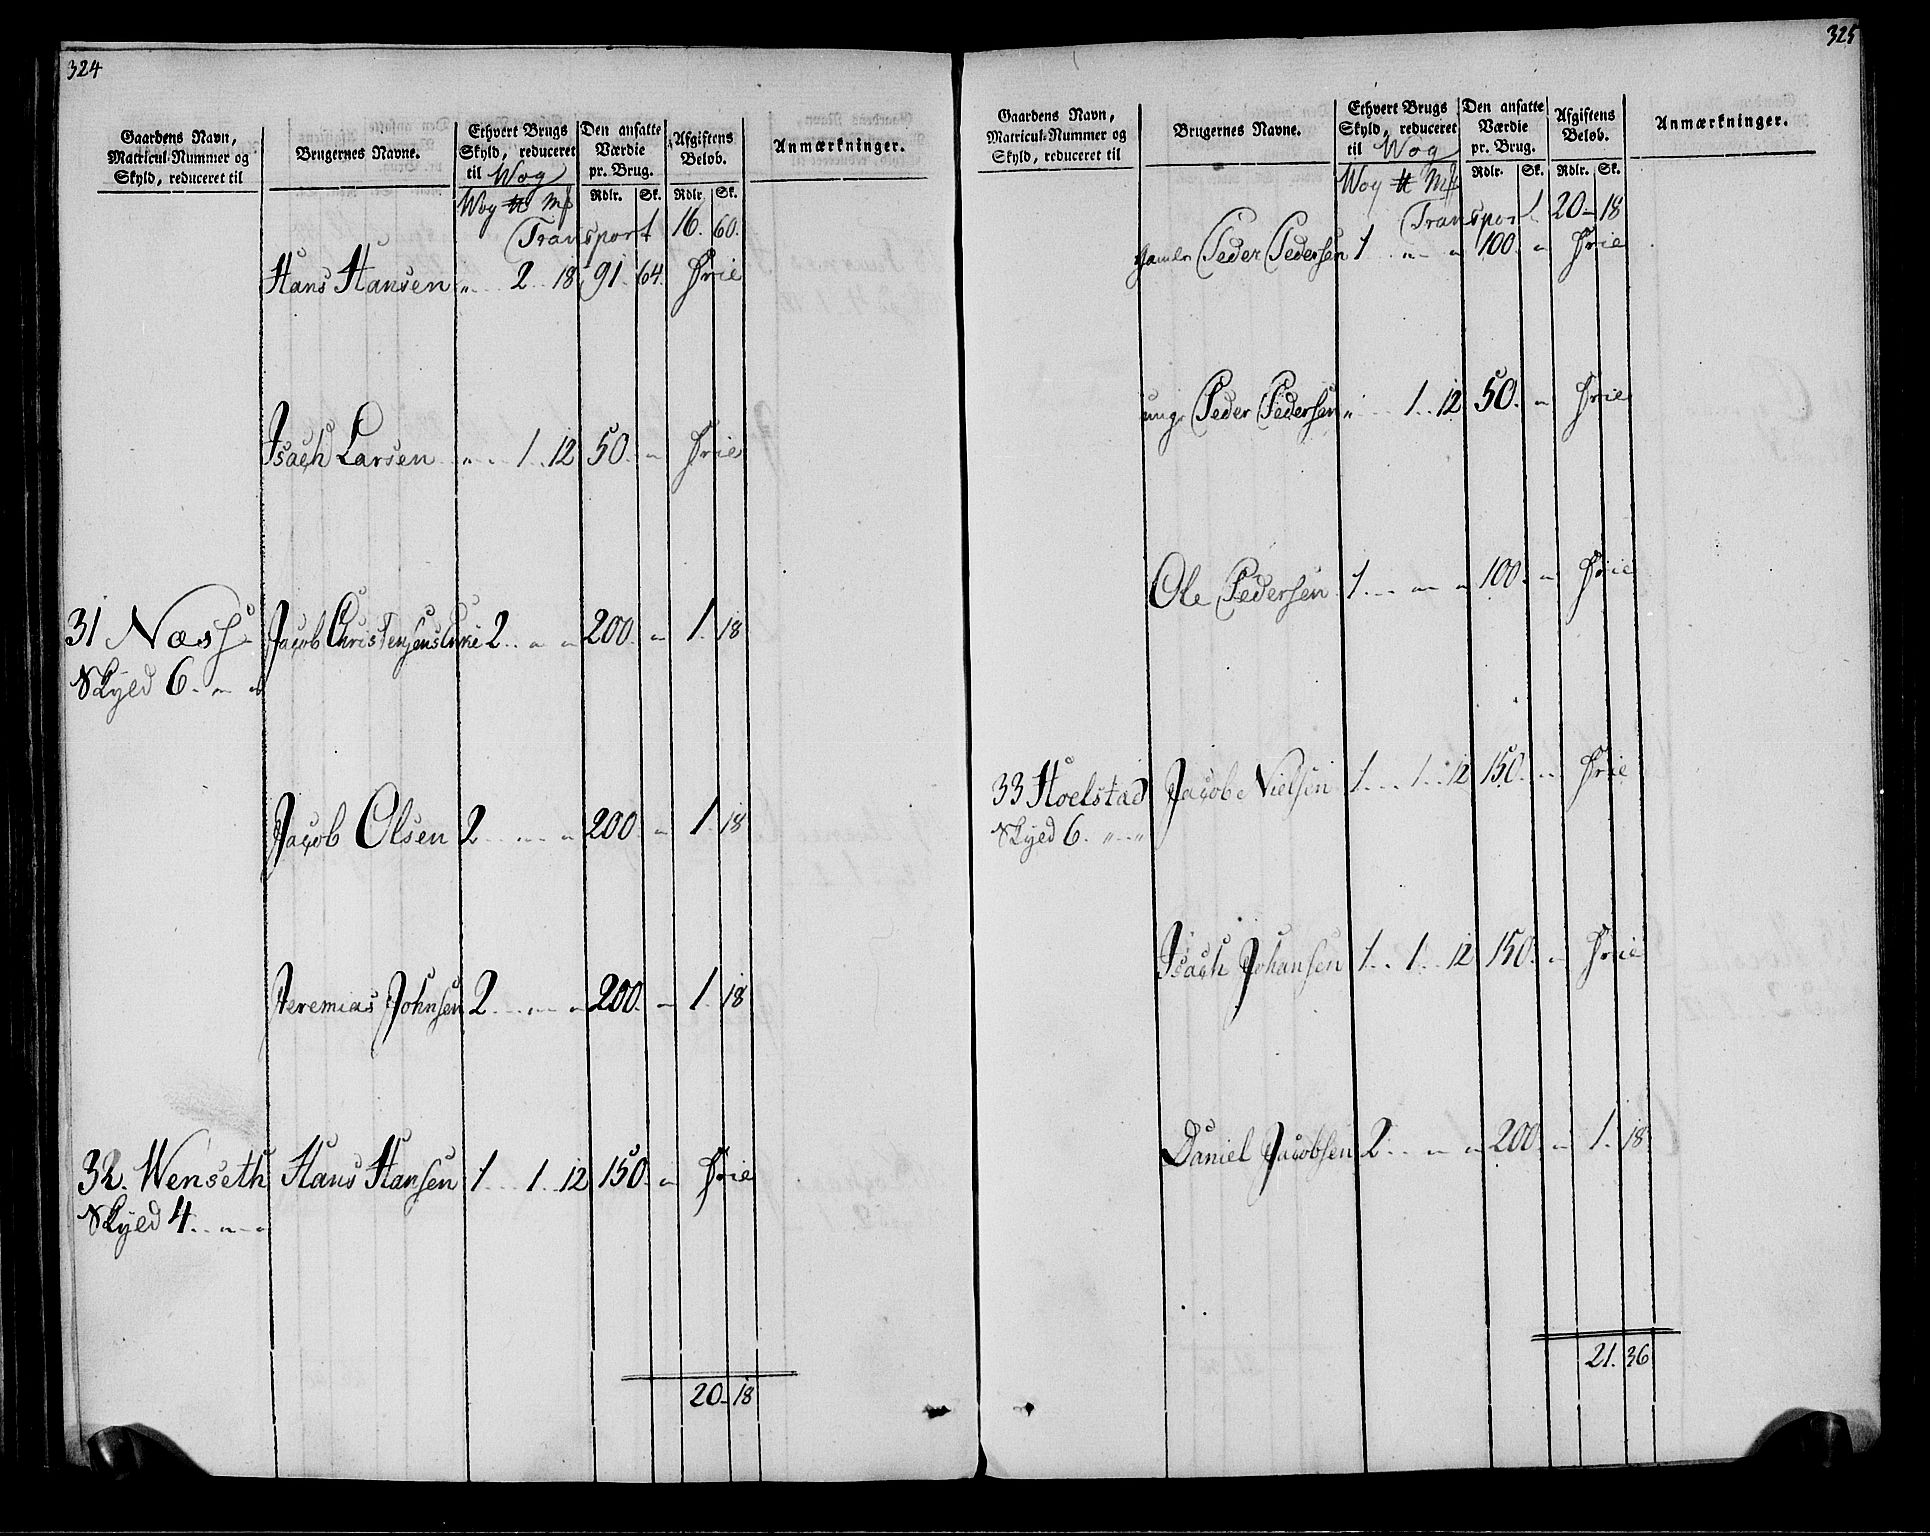 324
Gaardens Navn, Matricul-Nummer og Skyld, reduceret til
Brugernes Navne.
Ethvert Brugs Skyld, reduceret til Wog
Den ansatte Værdie pr. Brug.
Afgiftens Beløb.
Anmærkninger.
Wog ℔ Mk Rdlr. Sk. Rdlr. Sk.
Transport 16. 60.
Hans Hansen " 2 18 91. 64. Frie
Isach Larsen " 1 12 50. " Frie
31 Næss Jacob Christensens Enke 2 " " 200. " 1. 18
Skyld 6. " "
Jacob Olsen 2 " " 200 " 1. 18
Jeremias Johnsen 2 " " 200. " 1. 18
32. Wenseth Hans Hansen 1 1 12 150. " Frie
Skyld 4. " "
20 18
325
Gaardens Navn, Matricul-Nummer og Skyld, reduceret til
Brugernes Navne.
Ethvert Brugs Skyld, reduceret til Wog
Den ansatte Værdie pr. Brug.
Afgiftens Beløb.
Anmærkninger.
Wog ℔ Mk Rdlr. Sk. Rdlr. Sk.
Transport 20 18
Gamle Peder Pedersen 1 " " 100. " Frie
unge Peder Pedersen " 1 12 50. " Frie
Ole Pedersen 1 " " 100. " Frie
33 Hoelstad Jacob Nielsen 1 1 12 150. " Frie
Skyld 6. " "
Isach Johansen 1 1 12 150. " Frie
Daniel Jacobsen 2 " " 200 " 1. 18
21. 36